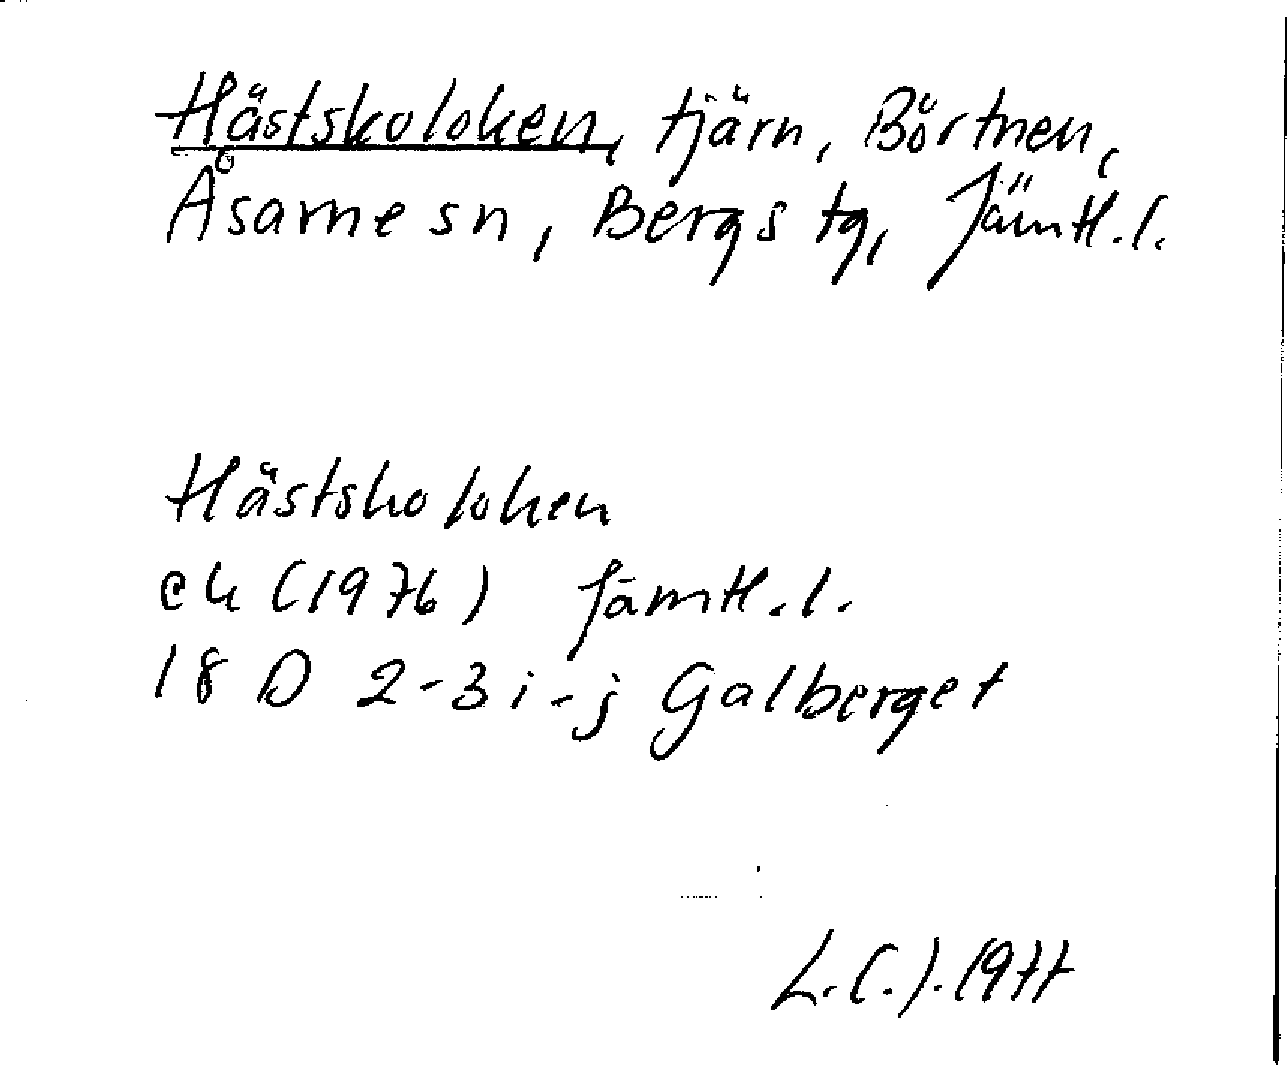 Hästskoloken, tjärn, Börtnen,
Åsarne sn, Bergs tg, Jämtl.l.
Hästskoloken
ek (1976) Jämtl.l.
18 D 2-3 i-j Galberget
L.C.J. 1977